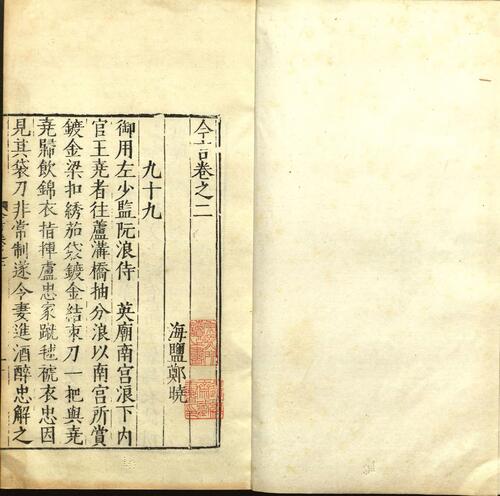 今言卷之二
海鹽鄭曉
九十九
御用左少監阮浪侍　英廟南宫浪下内
官王堯者往蘆溝橋抽分浪以南宫所賞
鍍金梁扣綉茄袋鍍金結束刀一把與堯
堯歸飲錦衣指揮盧忠家蹴毬裭衣忠因
見其袋刀非常制遂令妻進酒醉忠解之